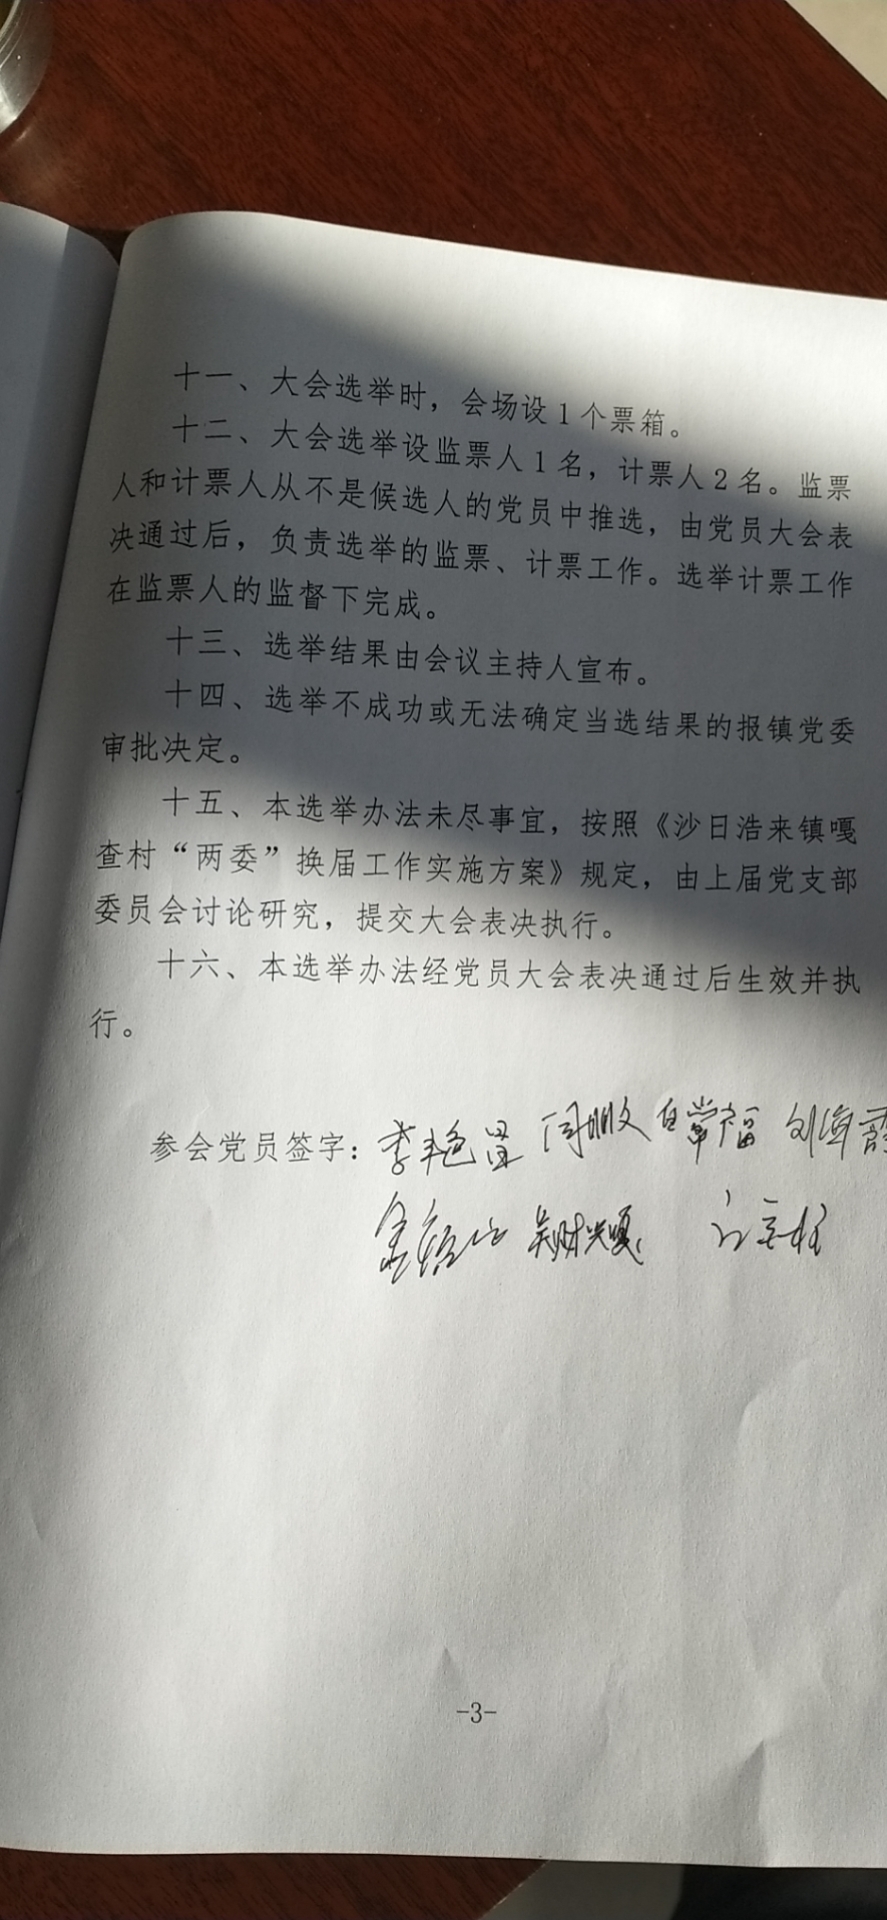 十一、大会选举时，会场设1个票箱。
十二、大会选举设监票人1名，计票人2名。监票
人和计票人从不是候选人的党员中推选，由党员大会表
决通过后，负责选举的监票、计票工作。选举计票工作
在监票人的监督下完成。
十三、选举结果由会议主持人宣布。
十四、选举不成功或无法确定当选结果的报镇党委
审批决定。
十五、本选举办法未尽事宜，按照《沙日浩来镇嘎
查村“两委”换届工作实施方案》规定，由上届党支部
委员会讨论研究，提交大会表决执行。
十六、本选举办法经党员大会表决通过后生效并执
行。
参会党员签字：刘海霞
-3-